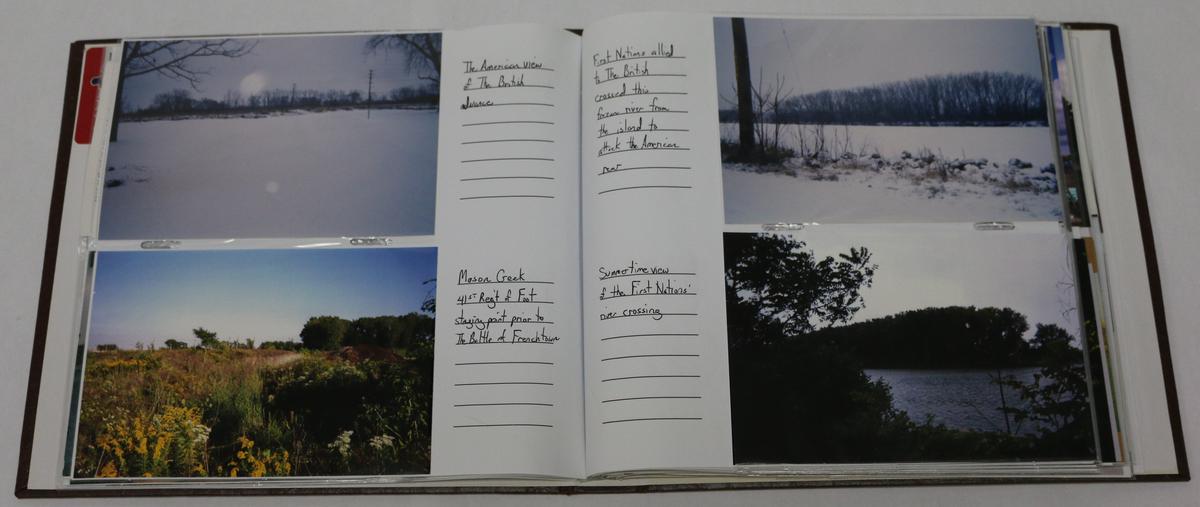 The American view
of The British
advance
Mason Creek
41st Reg't of Foot
staging point prior to
The Battle of Frenchtown
First Nations allied
to The British
crossed this
frozen river from
the island to
attack the American
rear
Summertime view
of the First Nations'
river crossing